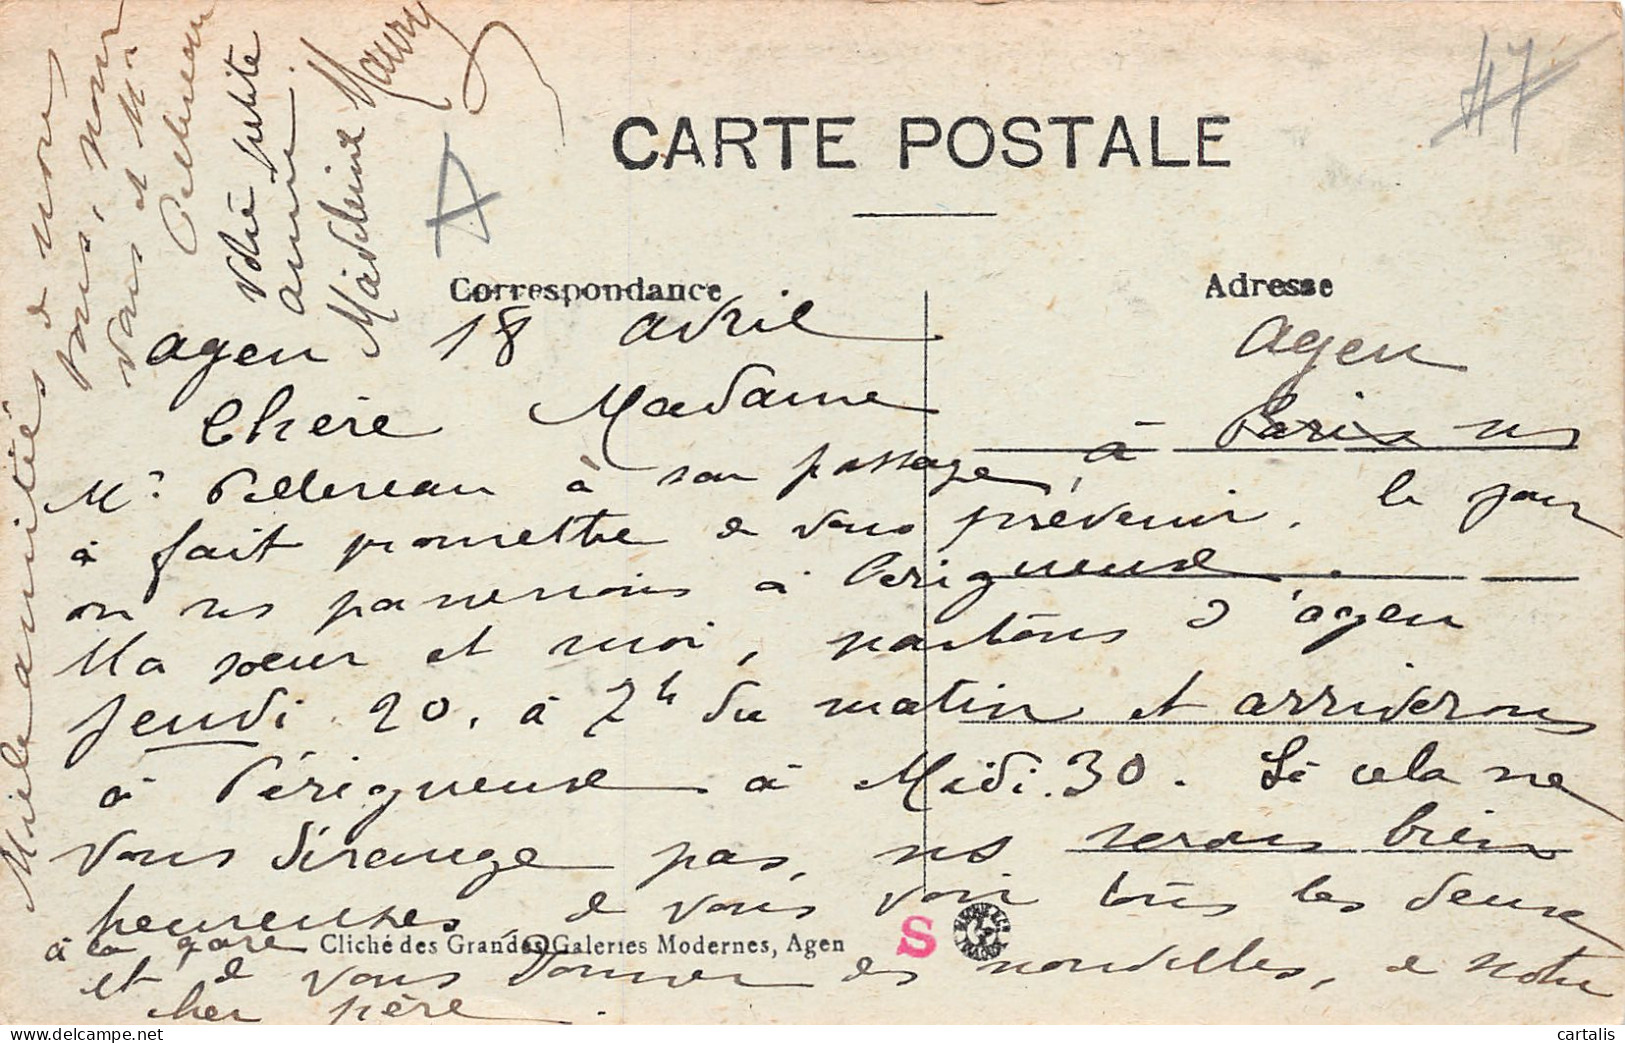 CARTE POSTALE
47
Correspondance
Adresse
agen 18 avril
agen
Chère Madame
Mr. Pellereau à son passage, à Paris ns
à fait promettre de vous prévenir. le jour
on ns passerions à Périgueux.
Ma sœur et moi, partons d'agen
jeudi 20, à 7h du matin et arriverons
à Périgueux à Midi.30. Si cela ne
vous dérange pas, ns serons bien
heureuses de vous voir tous les deux
à la gare
et de vous donner des nouvelles, de notre
cher père.
Cliché des Grandes Galeries Modernes, Agen
S
Mille amitiés de nous
tous, pour
vous et Mr
Pellereau
Votre petite
amie.
Madeleine Maury
cartalis